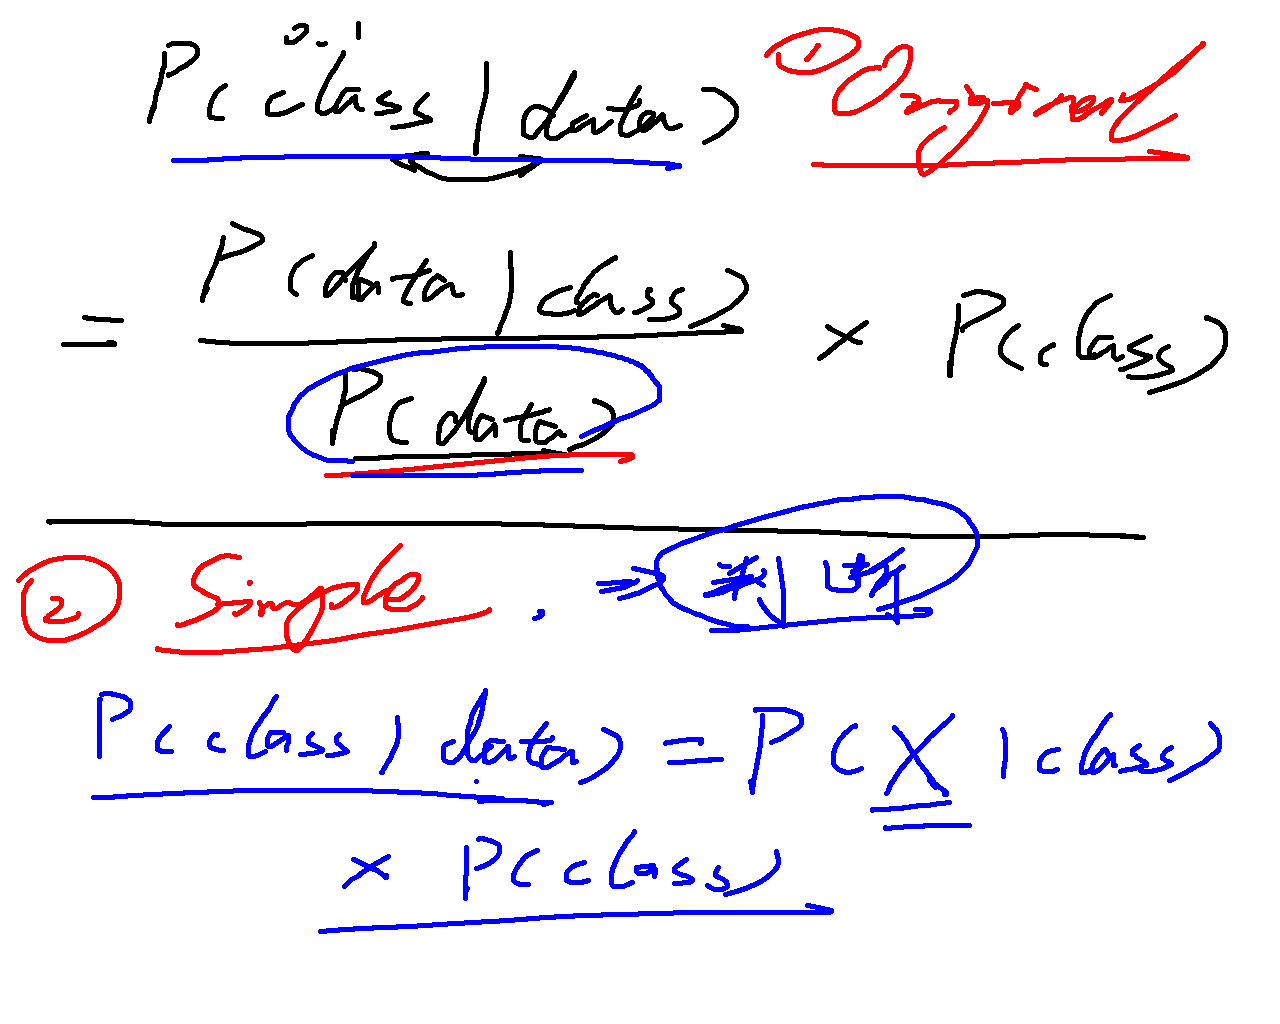 0..1
P(class | data) ① Original
= P(data | class) × P(class)
P(data)
② Simple . ⇒ 判断
P(class | data) = P(X | class)
× P(class)